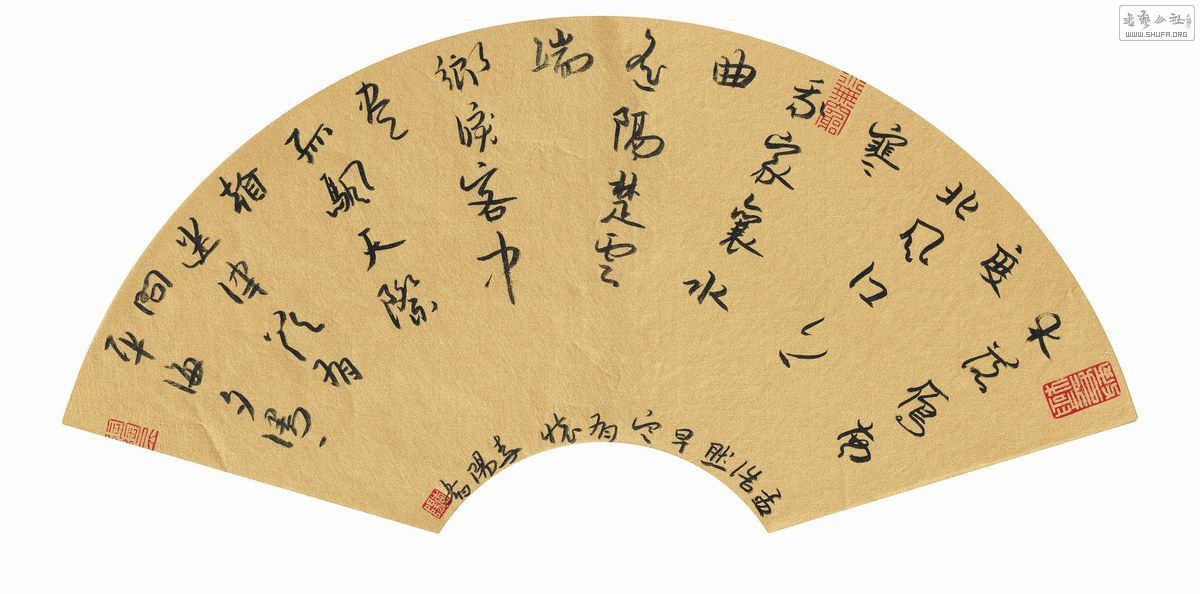 木落鴈南
度
北風江上
寒
我家襄水
曲
遙隔楚雲
端
鄉淚客中
盡
孤颿天際
看
迷津欲有
問
平海夕漫、
孟浩然早寒有懷
書藝公社
WWW.SHUFA.ORG